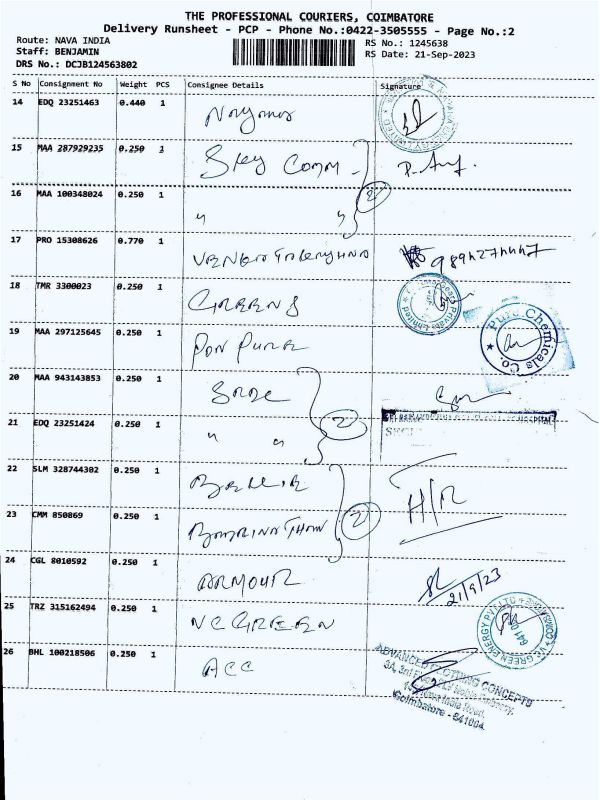 THE PROFESSIONAL COURIERS, COIMBATORE
Delivery Runsheet - PCP - Phone No.:0422-3505555 - Page No.:2
Route: NAVA INDIA
RS No.: 1245638
Staff: BENJAMIN
RS Date: 21-Sep-2023
DRS No.: DCJB124563802
S No Consignment No Weight PCS Consignee Details Signature
14 EDQ 23251463 0.440 1
15 MAA 287929235 0.250 1 Sky Comm
16 MAA 100348024 0.250 1 " "
2
17 PRO 15308626 0.770 1
18 TMR 3300023 0.250 1 GREENS
19 MAA 297125645 0.250 1 PON PURE
Pure Chemicals Co.
20 MAA 943143853 0.250 1
21 EDQ 23251424 0.250 1 " "
2
22 SLM 328744302 0.250 1
H/R
23 CMM 850869 0.250 1
2
24 CGL 8010592 0.250 1 ARMOUR
21/9/23
25 TRZ 315162494 0.250 1 VC GREEN
VC GREEN ENERGY PVT LTD
26 BHL 100218506 0.250 1 ACC
Coimbatore - 641004.